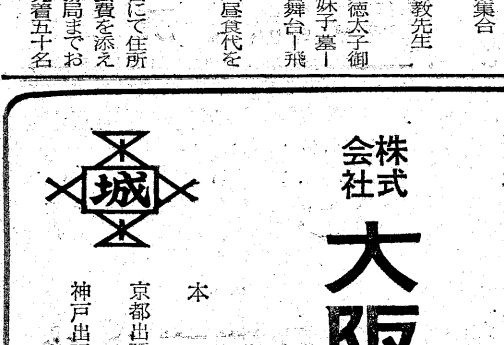 集合
教先生
徳太子御
妹子墓ー
舞台ー飛
昼食代を
にて住所
費を添え
局までお
着五十名
株式
会社
大阪
城
本
京都出
神戸出